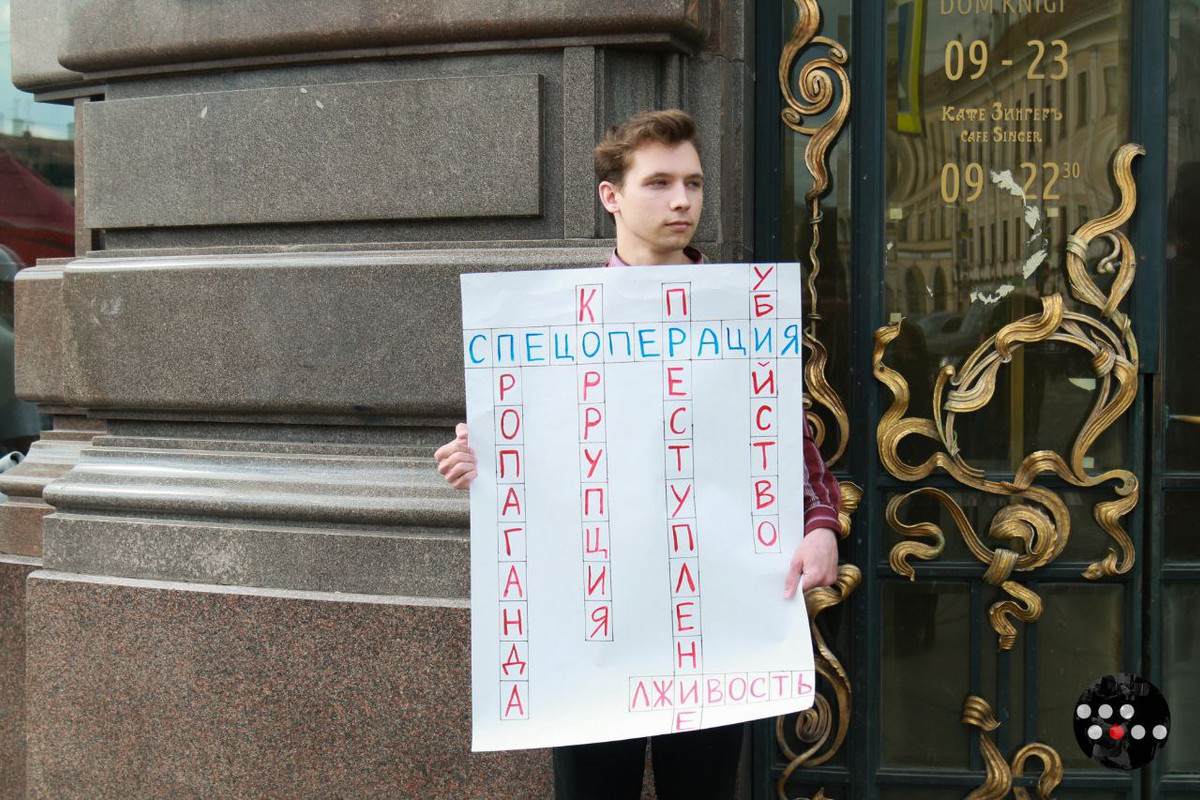 DOM KNIGI
09 - 23
Кафе Зингеръ
Cafe Singer
09 - 22 30
СПЕЦОПЕРАЦИЯ
ПРОПАГАНДА
КОРРУПЦИЯ
ПРЕСТУПЛЕНИЕ
УБИЙСТВО
ЛЖИВОСТЬ